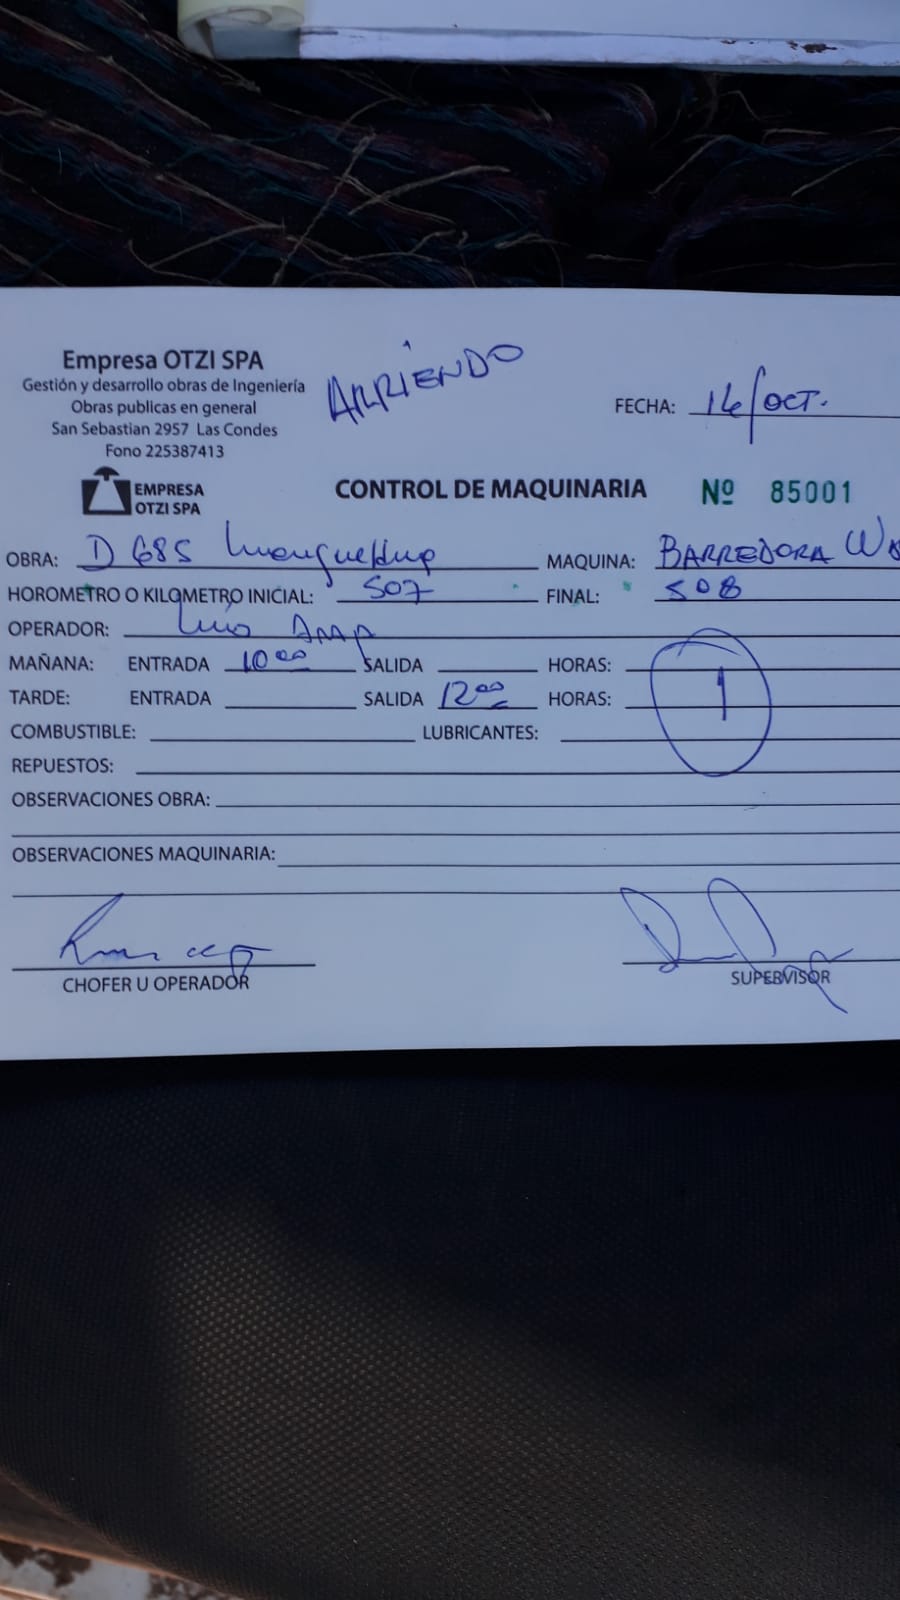 Empresa OTZI SPA
Gestión y desarrollo obras de Ingeniería
Obras publicas en general
San Sebastian 2957 Las Condes
Fono 225387413
EMPRESA
OTZI SPA
ARRIENDO
FECHA: 14/OCT.
CONTROL DE MAQUINARIA Nº 85001
OBRA: D 685 MAQUINA: BARREDORA
HOROMETRO O KILOMETRO INICIAL: 507 FINAL: 508
OPERADOR: Luis
MAÑANA: ENTRADA 10 00 SALIDA HORAS:
TARDE: ENTRADA SALIDA 12 00 HORAS: 1
COMBUSTIBLE: LUBRICANTES:
REPUESTOS:
OBSERVACIONES OBRA:
OBSERVACIONES MAQUINARIA:
CHOFER U OPERADOR SUPERVISOR